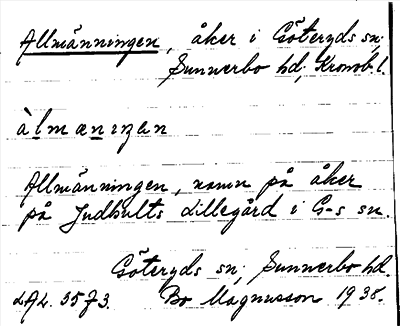 Allmänningen, åker i Göteryds sn;
Sunnerbo hd, Kronob. l.
àlmænıŋan
Allmänningen, namn på åker
på Judhults Lillegård i G-s sn.
Göteryds sn; Sunnerbo hd.
Bo Magnusson 1938.